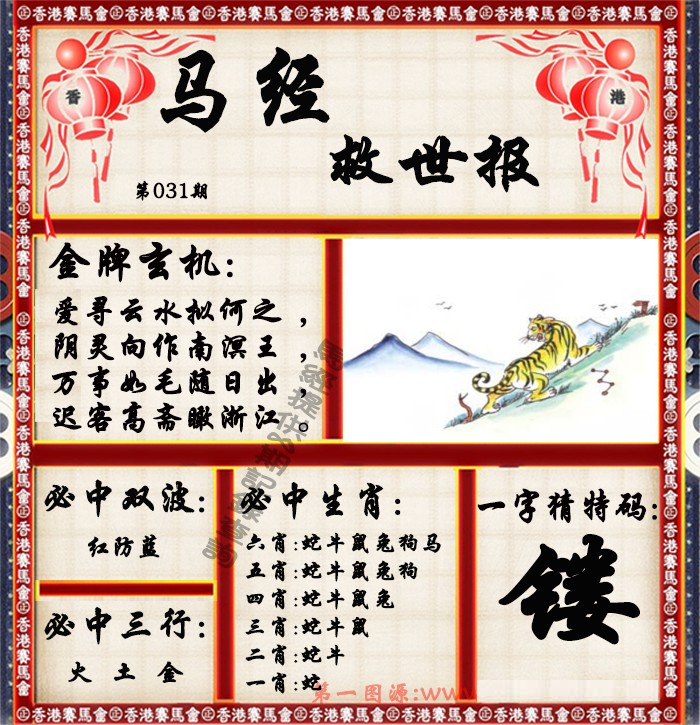 香港賽馬會
香
港
马经
救世报
第031期
金牌玄机:
爱寻云水拟何之，
阴灵向作南溟王，
万事如毛随日出，
迟客高斋瞰浙江。
必中双波:
红防蓝
必中三行:
火 土 金
必中生肖:
六肖:蛇牛鼠兔狗马
五肖:蛇牛鼠兔狗
四肖:蛇牛鼠兔
三肖:蛇牛鼠
二肖:蛇牛
一肖:蛇
一字猜特码:
镂
第一图源:www